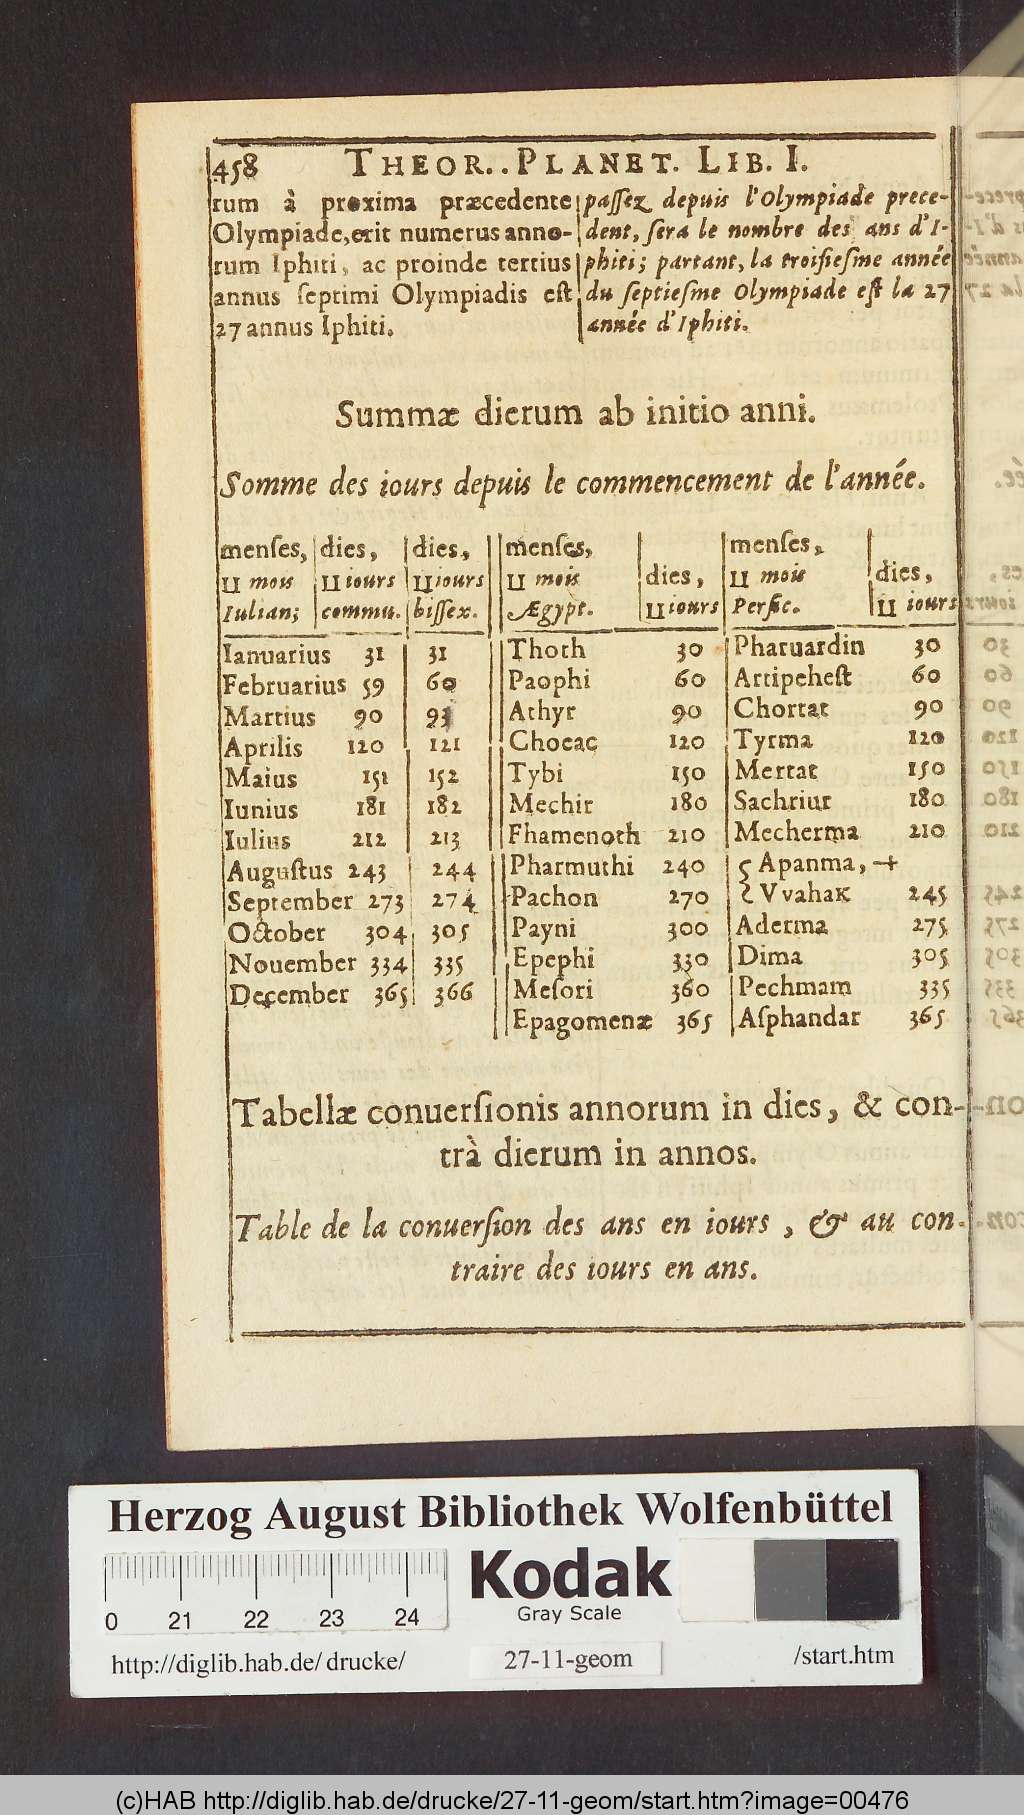 458 THEOR.. PLANET. LIB. I.
rum à proxima præcedente
Olympiade, erit numerus anno-
rum Iphiti, ac proinde tertius
annus septimi Olympiadis est
27 annus Iphiti.
passez depuis l'Olympiade prece-
dent, sera le nombre des ans d'I-
phiti; partant, la troisiesme année
du septiesme Olympiade est la 27
année d'Iphiti.
Summæ dierum ab initio anni.
Somme des iours depuis le commencement de l'année.
menses, dies, dies, menses, dies, menses, dies,
II mois II iours II iours II mois II iours II mois II iours
Iulian; commu. bissex. Ægypt. Persic.
Ianuarius 31 31 Thoth 30 Pharuardin 30
Februarius 59 60 Paophi 60 Artipehest 60
Martius 90 91 Athyr 90 Chortat 90
Aprilis 120 121 Choeac 120 Tyrma 120
Maius 151 152 Tybi 150 Mertat 150
Iunius 181 182 Mechir 180 Sachriur 180
Iulius 212 213 Fhamenoth 210 Mecherma 210
Augustus 243 244 Pharmuthi 240 Apanma, +
September 273 274 Pachon 270 Vvahak 245
October 304 305 Payni 300 Aderma 275
Nouember 334 335 Epephi 330 Dima 305
December 365 366 Mesori 360 Pechmam 335
Epagomenæ 365 Asphandar 365
Tabellæ conuersionis annorum in dies, & con-
trà dierum in annos.
Table de la conuersion des ans en iours, & au con-
traire des iours en ans.
Herzog August Bibliothek Wolfenbüttel
Kodak
Gray Scale
0 21 22 23 24
http://diglib.hab.de/drucke/ 27-11-geom /start.htm
(c)HAB http://diglib.hab.de/drucke/27-11-geom/start.htm?image=00476